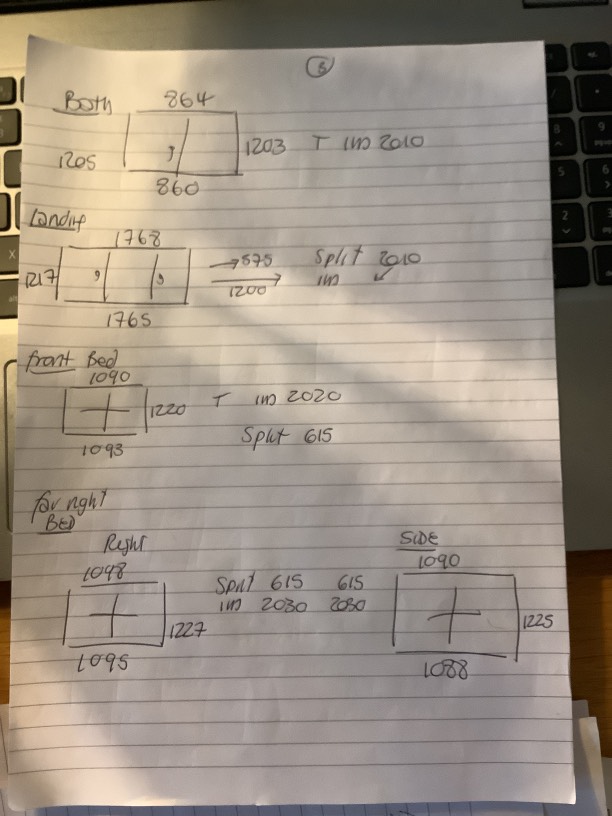 6
Both
864
1205
1203 T im 2010
860
Landing
1768
1217
→575 Split 2010
1200 im
1765
front Bed
1090
1220 T im 2020
1093 Split 615
far right
BED
Right SIDE
1098 1090
Split 615 615
im 2030 2030
1227 1225
1095 1088